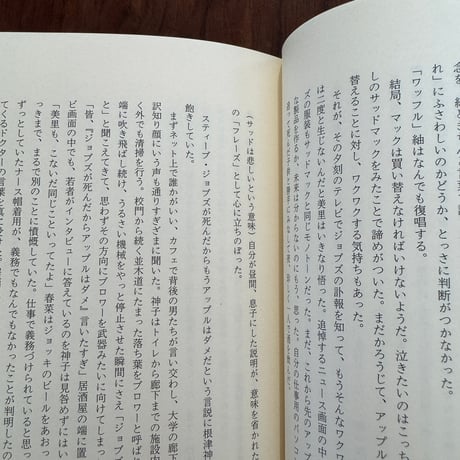 れ」にふさわしいのかどうか、とっさに判断がつかなかった。
「ワッフル」紬はなんでも復唱する。
結局、マックは買い替えなければいけないようだ。泣きたいのはこっち
しのサッドマックをみたことで諦めがついた。まだかろうじて、アップル
替えることに対し、ワクワクする気持ちもあった。
それが、その夕刻のテレビでジョブズの訃報を知って、もうそんなワクワク
は二度と生じないんだと美里はいきなり悟った。追悼するニュース画面の中
ズの服装もサッドマックと同じモノトーンだった。まだ、これから先のアップ
な製品を作るか、未来は分からないのにもう、思った。自分の仕事用のパソコ
(サッドは悲しいという意味)自分が昼間、息子にした説明が、意味を省かれた
の「フレーズ」として心に立ちのぼった。
スティーブ・ジョブズが死んだからもうアップルはダメだという言説に根津神
飽きていた。
まずネット上で誰かがいい、カフェで背後の男たちが言い交わし、大学の廊下
訳知り顔にいう声も通りすぎざまに聞いた。神子はトイレから廊下までの施設内
く外でも清掃を行う。校門から続く並木道にたまった落ち葉をブロワーと呼ばれ
端に吹き飛ばし続け、うるさい機械をやっと停止させた瞬間にさえ「ジョブズ
と」と聞こえてきて、思わずその方向にブロワーを武器みたいに向けてしまっ
「皆、『ジョブズが死んだからアップルはダメ』言いたすぎ」居酒屋の端に置
ビ画面の中でも、若者がインタビューに答えているのを神子は見咎めずにはい
「美里も、こないだ同じこといってたよ」春菜はジョッキのビールをあおっ
っきまで、まるで別のことに憤慨していた。仕事で義務づけられていると思っ
ずっとしていたナース帽着用が、義務でもなんでもなかったことが判明したの